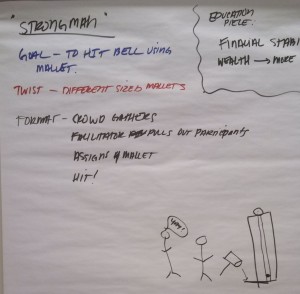 "STRONGMAN"
GOAL - TO HIT BELL USING
MALLET.
TWIST - DIFFERENT SIZED MALLETS
FORMAT - CROWD GATHERS
FACILITATOR PULLS OUT PARTICIPANTS
ASSIGNS MALLET
HIT!
EDUCATION
PIECE.
FINACIAL
WEALTH → MORE